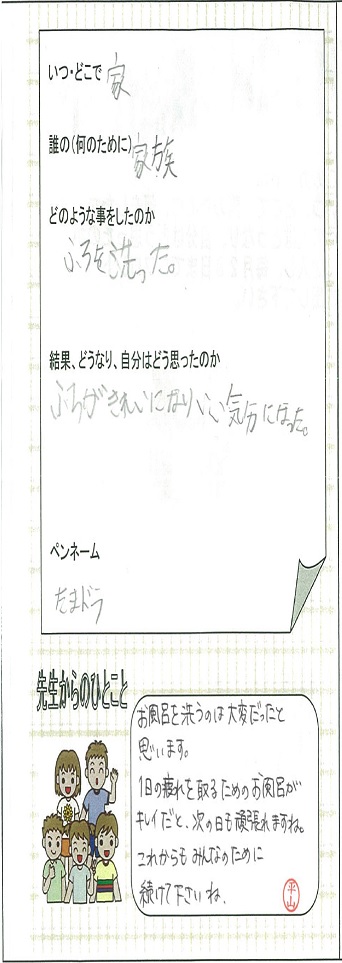 いつ・どこで 家
誰の(何のために) 家族
どのような事をしたのか
ふろを洗った。
結果、どうなり、自分はどう思ったのか
ふろがきれいになりいい気分になった。
ペンネーム
たまドラ
先生からのひとこと
お風呂を洗うのは大変だったと
思います。
1日の疲れを取るためのお風呂が
キレイだと、次の日も頑張れますね。
これからもみんなのために
続けて下さいね.
平山